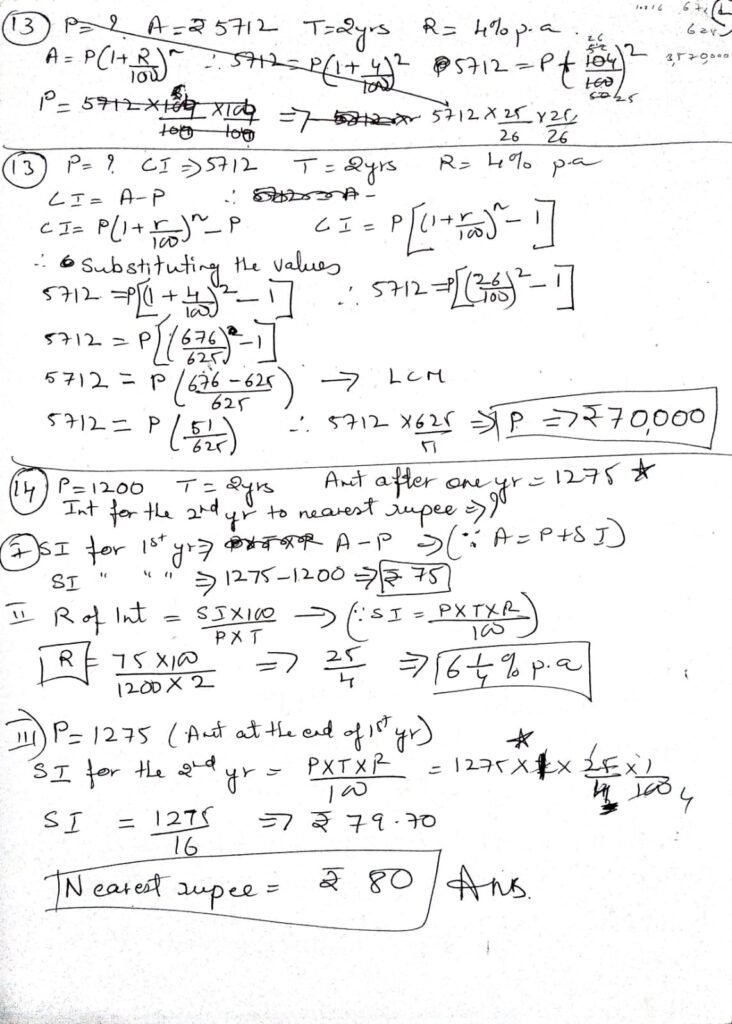 (13) P= ? A=₹ 5712 T=2yrs R= 4% p.a.
A = P(1+R/100)^n ∴ 5712=P(1+4/100)^2 5712=P+(104/100)^2
P= 5712×100/104 ×100/104 => 5712×25/26 ×25/26
(13) P= ? CI => 5712 T=2yrs R= 4% p.a
CI= A-P ∴
CI= P(1+r/100)^n - P CI = P[(1+r/100)^n - 1]
∴ Substituting the values
5712 =P[(1+4/100)^2 - 1] ∴ 5712=P[(26/100)^2 - 1]
5712 = P[(676/625)^2 - 1]
5712 = P(676-625/625) → LCM
5712 = P(51/625) ∴ 5712 ×625/51 => P => ₹70,000
(14) P=1200 T=2yrs Amt after one yr = 1275 ☆
Int for the 2nd yr to nearest rupee => ?
I SI for 1st yr => A-P => (∵ A = P+SI)
SI " " " => 1275-1200 => ₹ 75
II R of Int = SI×100/P×T → (∵ SI = P×T×R/100)
R = 75×100/1200×2 => 25/4 => 6 1/4 % p.a
III P=1275 (Amt at the end of 1st yr)
SI for the 2nd yr = P×T×R/100 = 1275×1× 25/4 ×1/100 4
SI = 1275/16 => ₹ 79.70
Nearest rupee = ₹ 80 Ans.